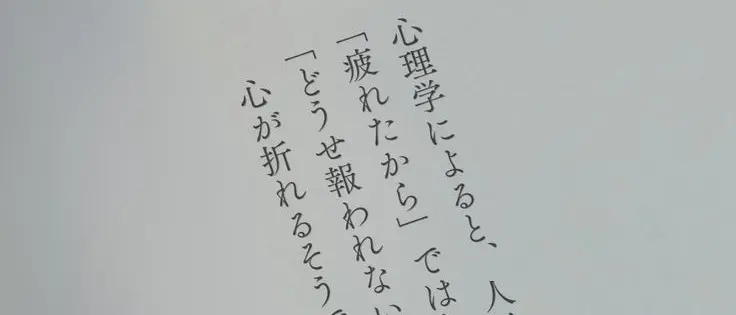 心理学によると、人
「疲れたから」では
「どうせ報われない
心が折れるそう